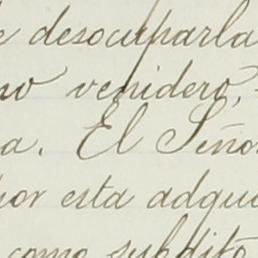 e desocuparla
no venidero,
a. El Seño
por esta adqui
como subdito